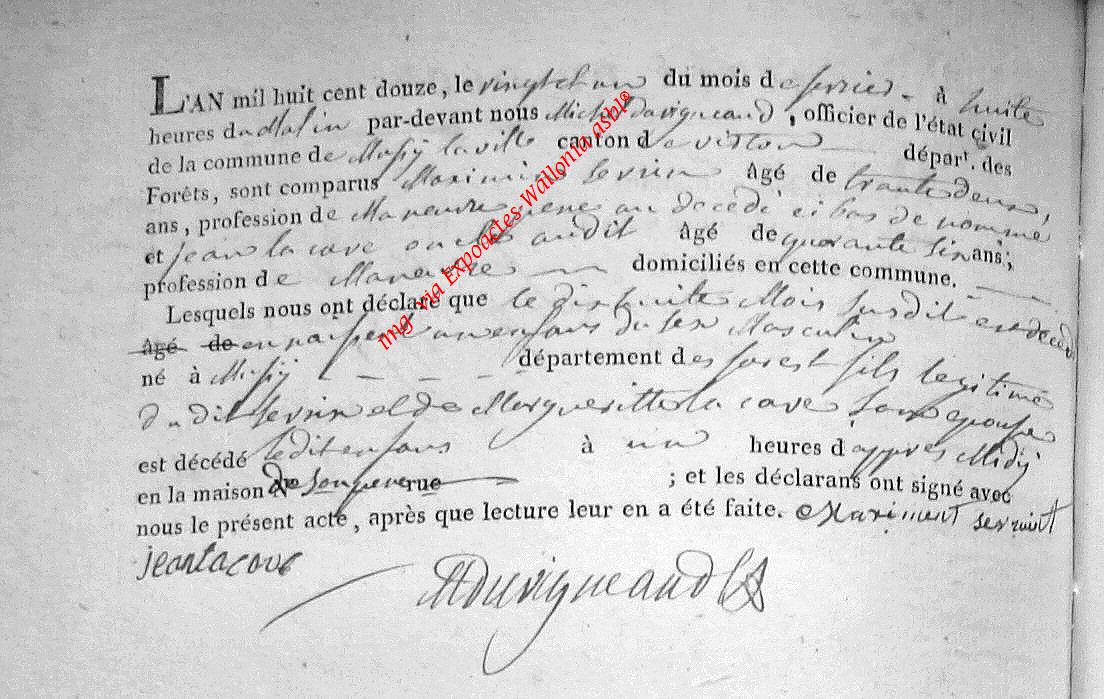 L'AN mil huit cent douze, le vingt et un du mois de fevrier à huite
heures du Matin par-devant nous Michel Duvigneaud, officier de l'état civil
de la commune de Mussÿ la ville canton de virton départ. des
Forêts, sont comparus Maximin Servin âgé de trante deux,
ans, profession de Maneuvre pere au decedé ci bas denommé
et jean la cave oncle audit âgé de quarante six ans;
profession de Maneuvre domiciliés en cette commune.
Lesquels nous ont déclaré que le dix huite Mois susdit est decédé
âgé de un enfans du sex Masculin
né à Mussÿ département des forest fils legitime
du dit Servin et de Margueritte la cave son epouse
est décédé ledit enfans à un heures d'appres Midÿ
en la maison de son pere rue ; et les déclarans ont signé avec
nous le présent acte, après que lecture leur en a été faite. Maximent servint
jean lacave
MDuvigneaud
img via Expoactes-Wallonia asbl®